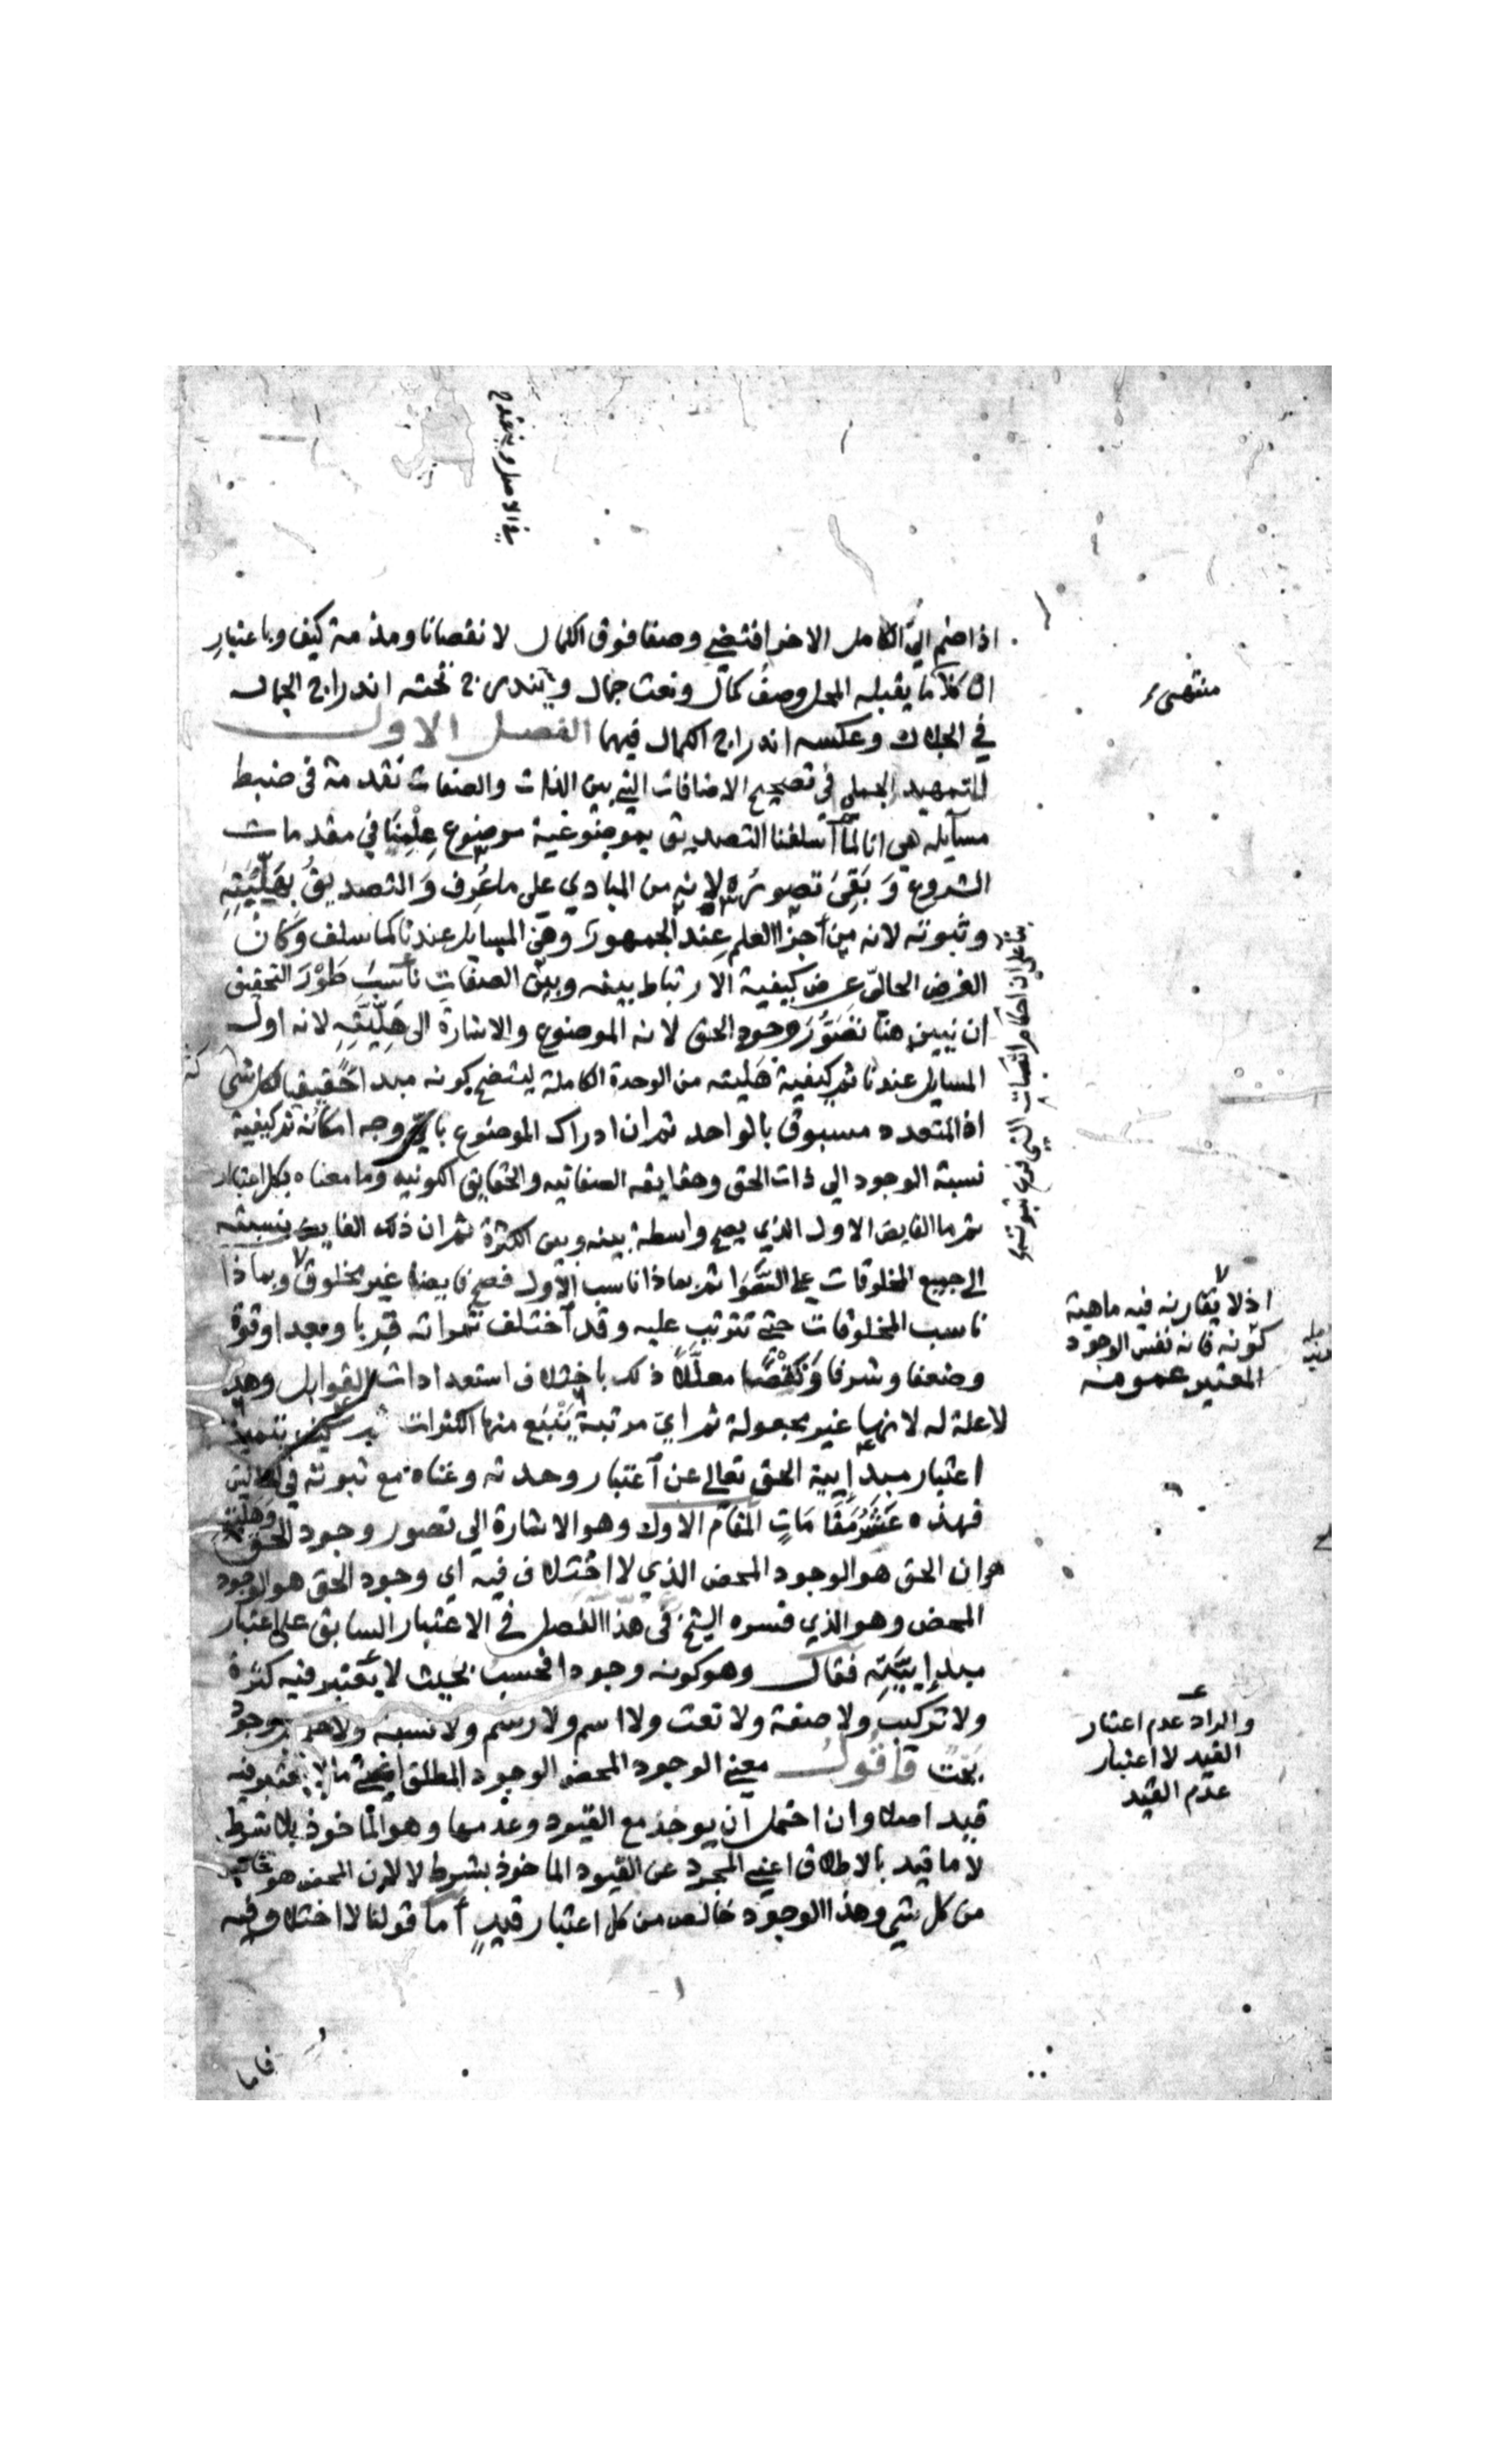 اذا ضم الى الكامل الاخر اقتضي وصفا فوق الكمال لا نقصانا ومذمة كيف وباعتبار
ان كلا ما يقبله المحل وصف كمال ونعت جمال ويندرج تحته اندراج الجمال
في الجلال وعكسه اندراج الكمال فيهما الفصل الاول
في التمهيد الجملي في تصحيح الاضافات التي بين الذات والصفات تقدمة فى ضبط
مسآيله هي انا لما آسلفنا التصديق بموضوعية موضوع علمنا في مقدمات
الشروع وبقي تصوره لانه من المبادي على ما عرف والتصديق بهليته
وثبوته لانه من آجزا العلم عند الجمهور وهي المسايل عندنا كما سلف وكان
الغرض الحالي عرض كيفية الارتباط بينه وبين الصفات ناسب طور التحقيق
ان نبين هنا تصور وجود الحق لانه الموضوع والاشارة الى هليته لانه اول
المسايل عندنا ثم كيفية هليته من الوحدة الكاملة ليتضح كونه مبدا حقيقيا لكل شى
اذ المتعدد مسبوق بالواحد ثم ان ادراك الموضوع باي وجه امكانه ثم كيفية
نسبة الوجود الي ذات الحق وحقايقه الصفاتيه والحقايق الكونيه وما معناه بكل اعتبار
ثم ما الفايض الاول الذي يصح واسطة بينه وبين الكثرة ثم ان ذلك الفايض بنسبته
الى جميع المخلوقات على السوا ثم بماذا ناسب الاول فصح فايضا غير مخلوق وبماذا
ناسب المخلوقات حتي تترتب عليه وقد آختلف ثمراته قربا وبعدا وقوة
وضعفا وشرفا ونقصا معللا ذلك باختلاف استعدادات القوابل وهذه
لا علة له لانها غير مجعولة ثم اي مرتبة ينبع منها الكثرات ثم كيف يتميز
اعتبار مبدإيية الحق تعالى عن آعتبار وحدته وغناه مع ثبوته في
فهذه عشر مقامات المقام الاول وهو الاشارة الي تصور وجود الحق وهليته
هو ان الحق هو الوجود المحض الذي لا اختلاف فيه اي وجود الحق هو الوجود
المحض وهو الذي فسره الشيخ فى هذا الفصل في الاعتبار السابق على اعتبار
مبدإييته فقال وهو كونه وجودا فحسب بحيث لا يعتبر فيه كثرة
ولا تركيب ولا صفة ولا نعت ولا اسم ولا رسم ولا نسبة ولا حكم بل وجود
بحت فاقول معني الوجود المحض الوجود المطلق اعني ما لا يعتبر فيه
قيد اصلا وان احتمل آن يوخذ مع القيود وعدمها وهو الماخوذ بلا شرط
لا ما قيد بالاطلاق اعني المجرد عن القيود الماخوذ بشرط لا لان المحض هو الخالص
من كل شي وهذا الوجود خالص من كل اعتبار قيد أما قولنا لا اختلاف فيه
فاما
منتهى
بنا على ان احكام النسبات التي فرع ثبوتها
اذ لا يقارنه فيه ماهية
كونه فانه نفس الوجود
المعتبر عمومه
والمراد عدم اعتبار
القيد لا اعتبار
عدم القيد